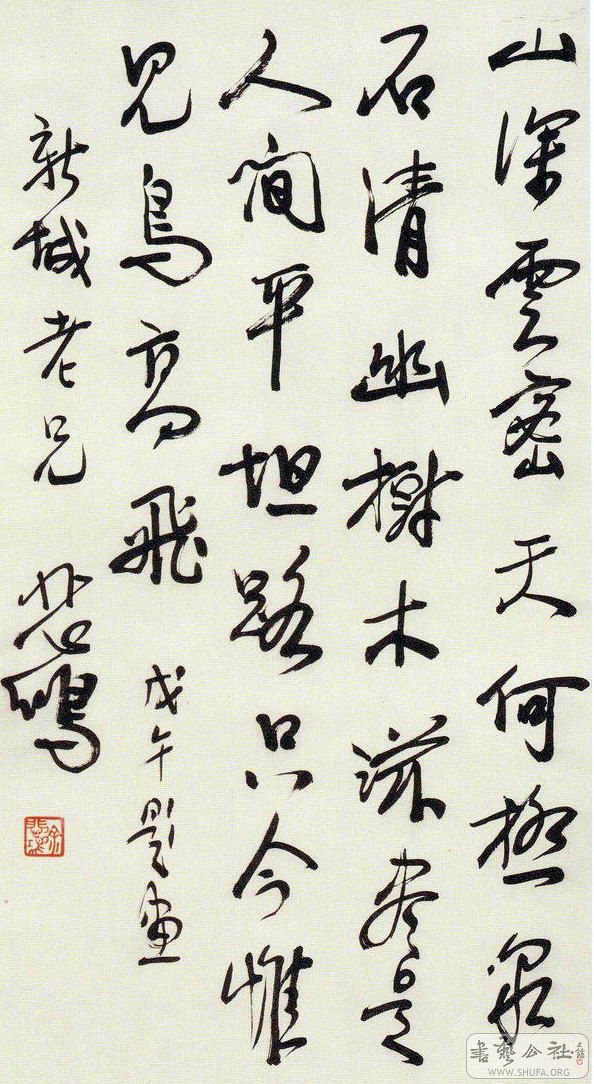 山深雲密天何極泉
石清幽樹木滋盡是
人間平坦路只今惟
見鳥高飛 戊午題畫
新城老兄 悲鴻
書藝公社
WWW.SHUFA.ORG